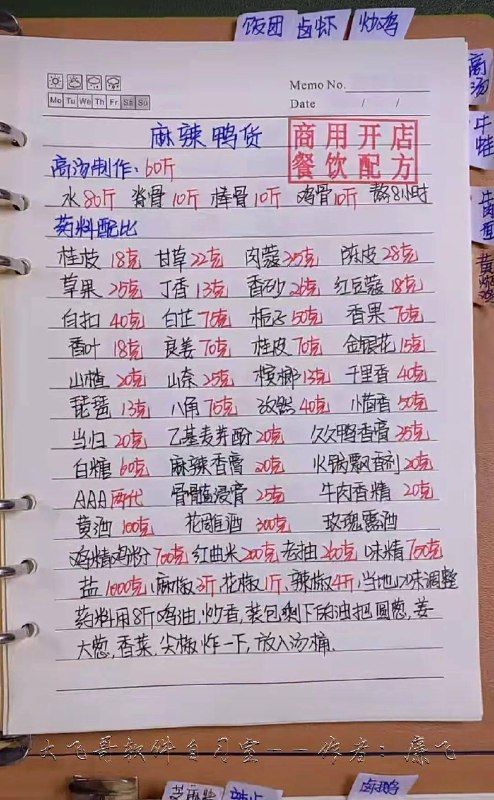 饭团 卤虾 炒鸡
高汤
Memo No.
Mo Tu We Th Fr Sa Su
Date / /
麻辣鸭货
商用开店
餐饮配方
高汤制作:60斤
水80斤 脊骨10斤 棒骨10斤 鸡骨10斤 熬8小时
药料配比
桂皮18克 甘草22克 肉蔻35克 陈皮28克
草果25克 丁香13克 香砂26克 红豆蔻18克
白扣40克 白芷75克 栀子50克 香果70克
香叶18克 良姜70克 桂皮70克 金银花15克
山楂20克 山奈25克 槟榔13克 千里香40克
琵琶13克 八角75克 孜然40克 小茴香50克
当归20克 乙基麦芽酚20克 久久鸭香膏35克
白糖60克 麻辣香膏20克 火锅飘香剂20克
AAA两代 骨髓浸膏25克 牛肉香精20克
黄酒100克 花雕酒300克 玫瑰露酒
鸡精鸡粉700克 红曲米200克 老抽260克 味精700克
盐1000克,麻椒2斤 花椒1斤,辣椒4斤,当地口味调整
药料用8斤鸡油,炒香,装包剩下的油把圆葱,姜
大葱,香菜,尖椒炸一下,放入汤桶.
大飞哥软件自习室——作者:廉飞
卤鸡